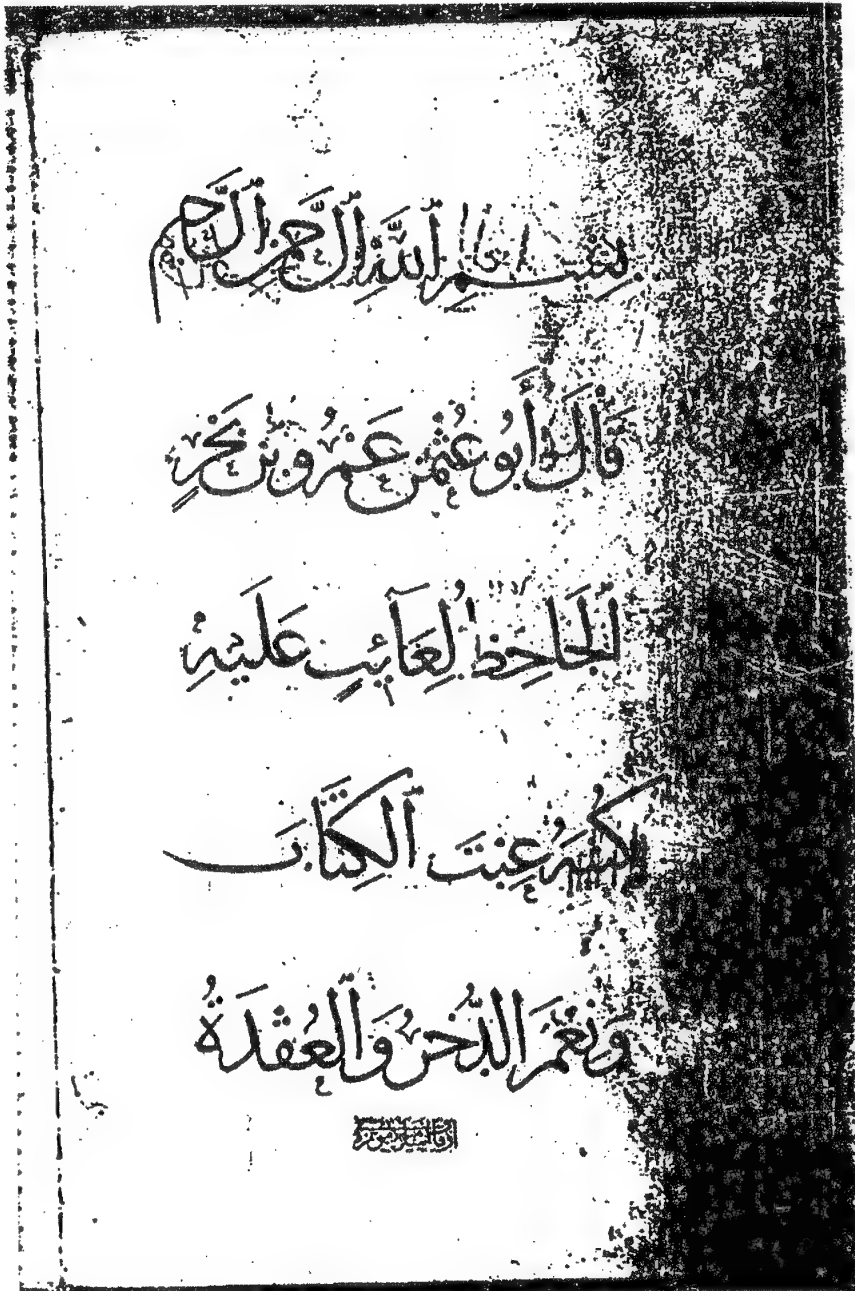 بِسْمِ ٱللَّهِ ٱلرَّحْمَنِ ٱلرَّحِيمِ
قَالَ أَبُو عُثْمٰنَ عَمْرُو بْنُ بَحْرٍ
ٱلْجَاحِظُ لِعَآئِبٍ عَلَيْهِ
كُتُبَهُ عِبْتَ ٱلْكِتَابَ
وَنِعْمَ الذُّخْرُ وَٱلْعُقْدَةُ